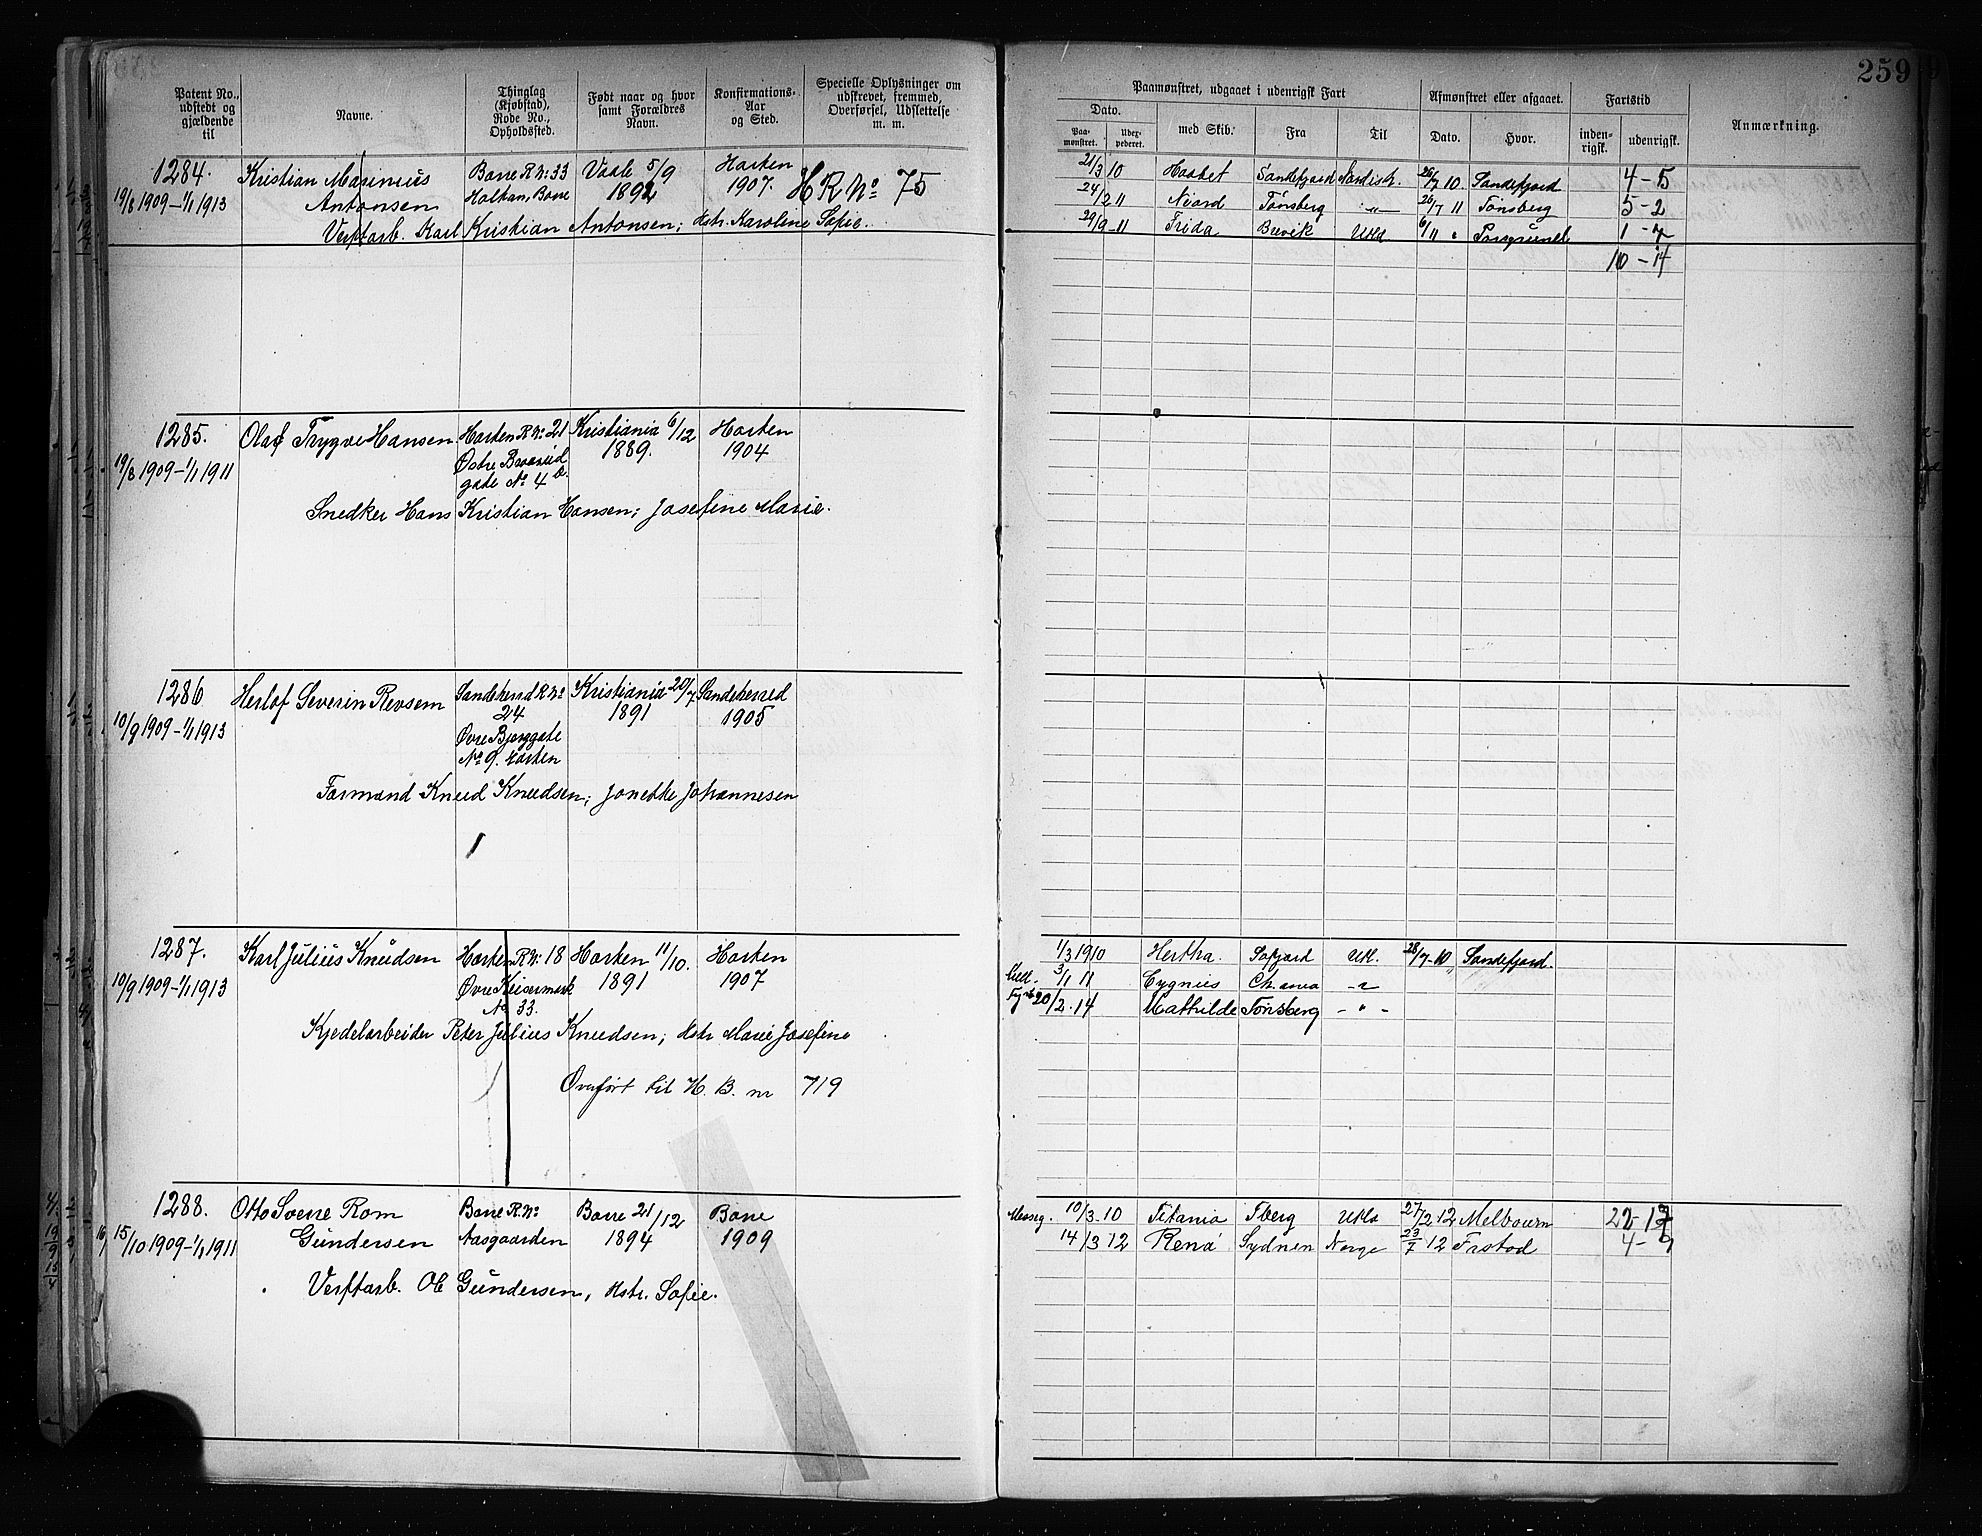 259
Patent No., udstedt og gjældende til
Navne.
Thinglag (Kjøbstad), Rode No., Opholdssted.
Født naar og hvor samt Forældres Navn.
Konfirmations- Aar og Sted.
Specielle Oplysninger om udskrevet, fremmed, Overførsel, Udslettelse m. m.
Paamønstret, udgaaet i udenrigsk Fart
Afmønstret eller afgaaet.
Fartstid
Anmærkning.
Dato.
Paa- mønstret.
med Skib.
Fra
Til
Dato.
Hvor.
inden- rigsk.
udenrigsk.
1284. Kristian Marinius Borre R. No 33 Vaale 5/9 Horten
19/8 1909–1/1 1913 Antonsen Borre 1892 1907. H R No 75
Verftarb. Karl Kristian Antonsen; Hstr. Karoline Sofie.
21/3 10 Sandefjord 26/7 10 Sandefjord 4 – 5
24/2 11 Njord Tønsberg –"– 26/7 11 Tønsberg 5 – 2
29/9 – 11 Frida Brevik Utld 6/11 " 1 – 7
10 – 14
1285. Olaf Trygve Hansen Horten R No. 21 Kristiania 6/12 Horten
19/8 1909–1/1 1911 Østre 1889. 1904
gade No 4 b.
Snedker Hans Kristian Hansen; Josefine Marie.
1286 Herlof Severin Revsem Sandeherred R No Kristiania 20/7 Sandeherred
10/9 1909–1/1 1913 24 1891 1905
Øvre Bjerggate
No 9. Horten
Formand Knud Knudsen; Jonette Johannesen
1287. Karl Julius Knudsen Horten R. No: 18 Horten 11/10. Horten
10/9 1909–1/1 1913 Øvre Keisermark 1891 1907
No 33.
Kjedelarbeider Peter Julius Knudsen; Hstr Marie Josefine
Overført til H. B. nr 719
1/3 1910 Hertha. Utl. 28/7 – 10 Sandefjord.
3/1 11 Cygnus Ch.ania –"
20/2. 14 Mathilde Tønsberg – " –
1288. Otto Sverre Rom Borre R. No Borre 21/12 Borre
15/10 1909–1/1 1911 Gundersen Aasgaarden 1894 1909
Verftarb. Ole Gundersen, Hstr. Sofie.
10/3 10 Titania Tberg Utld 27/2 12 Melbourn
14/3 12 Rena Sydney Norge 23/7 12 4 – 9